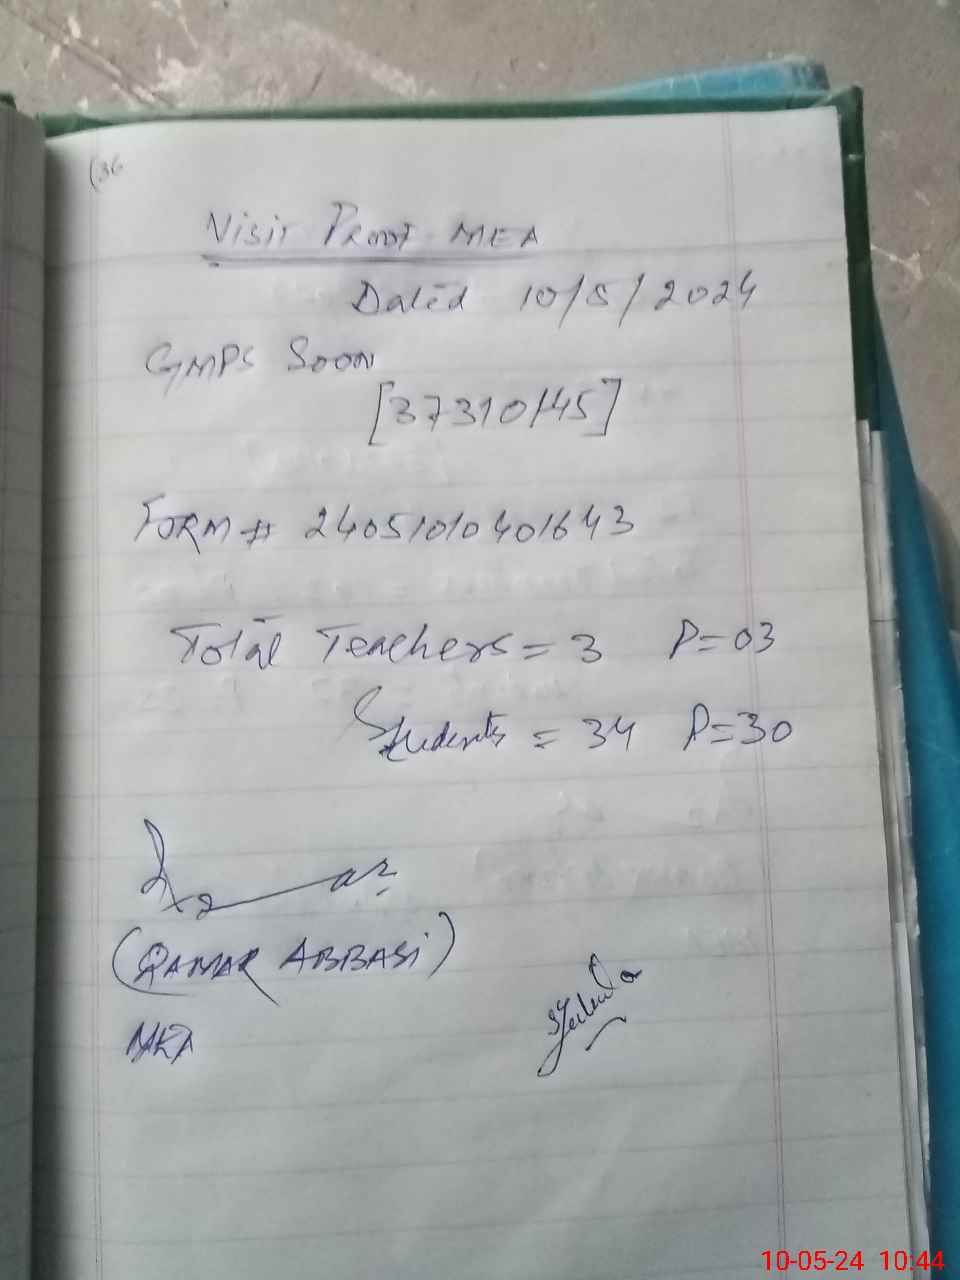 (36
Visit Proof MEA
Dated 10/5/2024
GMPS Soon
[37310145]
Form # 24051010401643
Total Teachers = 3 P=03
Students = 34 P=30
(QAMAR ABBASi)
MEA
10-05-24 10:44